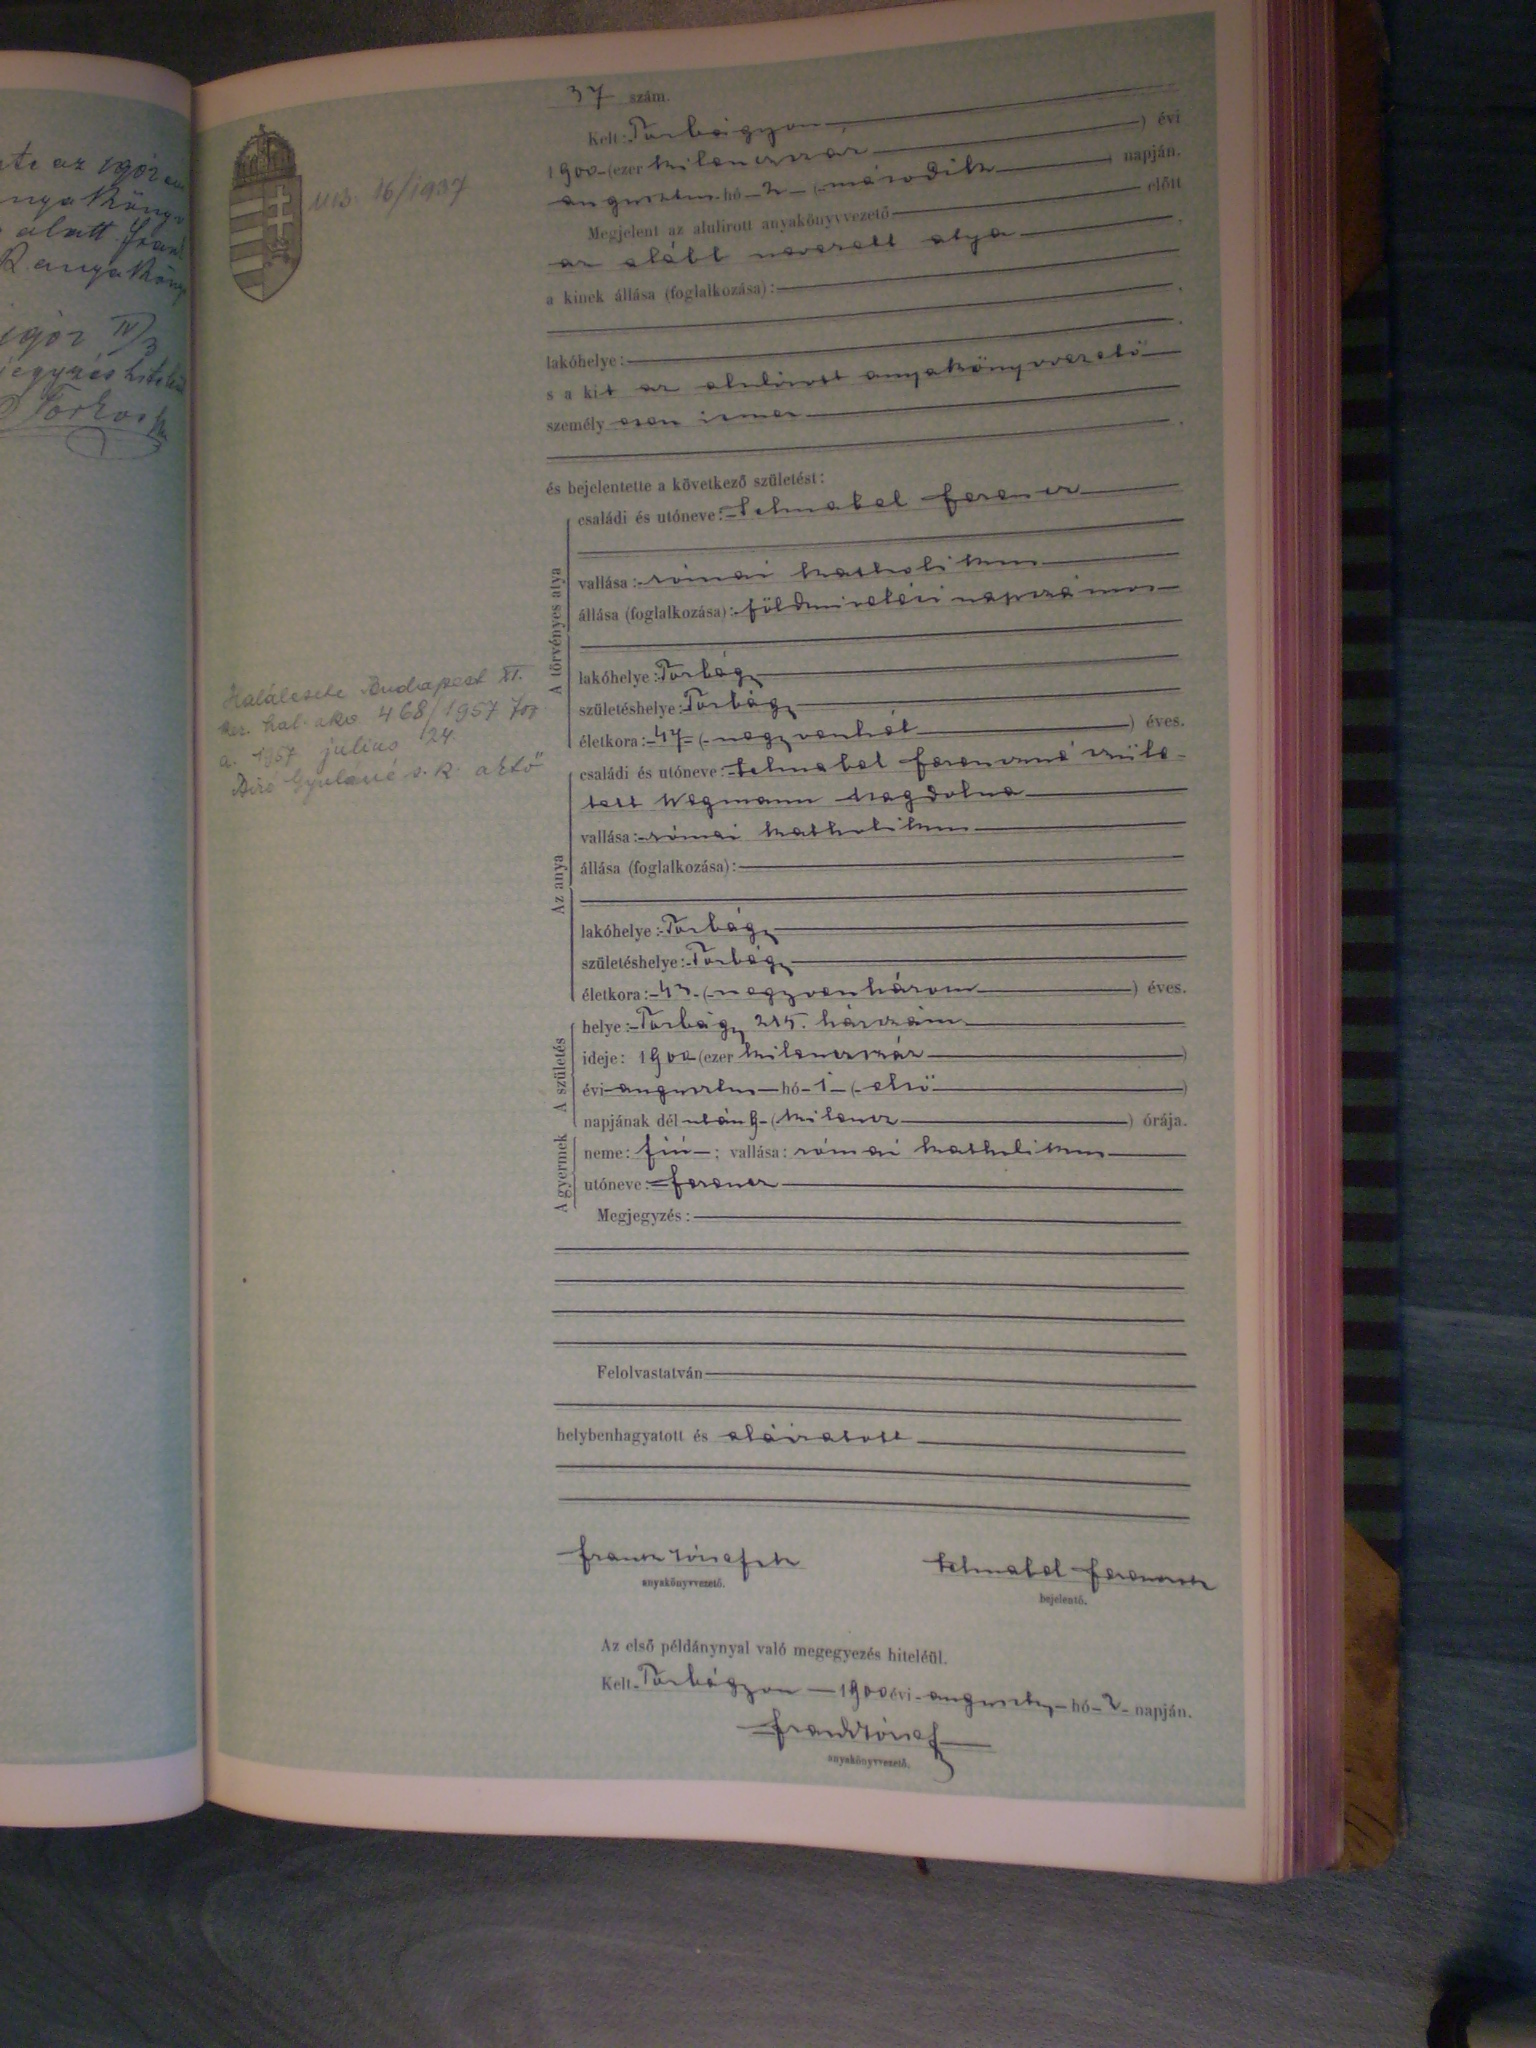 37 szám.
Kelt: Torbágyon
1900 (ezer kilenczszáz) évi
augusztus hó 2 (második) napján.
Megjelent az alulirott anyakönyvvezető előtt
az alább nevezett atya
a kinek állása (foglalkozása):
lakóhelye:
s a kit az alulirott anyakönyvvezető
személyesen ismer
és bejelentette a következő születést:
A törvényes atya
családi és utóneve: Schnabel Ferencz
vallása: római katholikus
állása (foglalkozása): földmivelési napszámos
lakóhelye: Torbágy
születéshelye: Torbágy
életkora: 47 (negyvenhét) éves.
Az anya
családi és utóneve: Schnabel Ferenczné szüle-
tett Wegmann Magdolna
vallása: római katholikus
állása (foglalkozása):
lakóhelye: Torbágy
születéshelye: Torbágy
életkora: 43 (negyvenhárom) éves.
A születés
helye: Torbágy 215. házszám
ideje: 1900 (ezer kilenczszáz)
évi augusztus hó 1 (első)
napjának dél után 9 (kilencz) órája.
A gyermek
neme: fiú; vallása: római katholikus
utóneve: Ferencz
Megjegyzés:
Felolvastatván
helybenhagyatott és aláiratott
anyakönyvvezető.
Schnabel Ferencz
bejelentő.
Az első példánynyal való megegyezés hiteléül.
Kelt Torbágyon 1900 évi augusztus hó 2 napján.
Frank József
anyakönyvvezető.
16/1937
Halálesete Budapest XI.
ker. hal. akv. 468/1957
a. 1957 július 24.
Biró Gyuláné s.k.
az
alatt